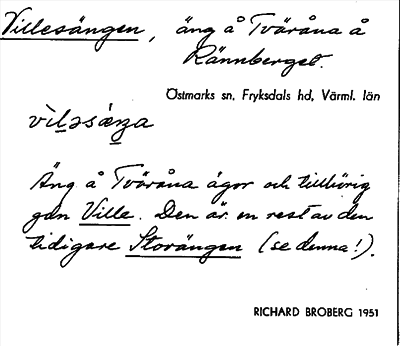 Villesängen, äng å Tväråna å
Rännberget.
Östmarks sn, Fryksdals hd, Värml. län
Äng å Tväråna ägor och tillhörig
gdn Ville. Den är en rest av den
tidigare Storängen (se denna!).
RICHARD BROBERG 1951